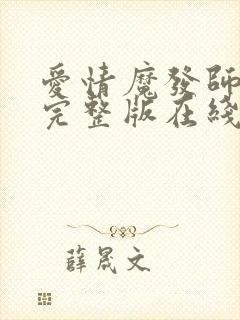 愛情魔發師
完整版在綫
薛晟文